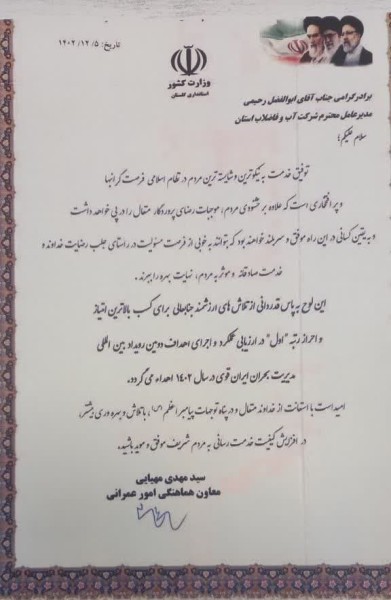 تاریخ: ۱۴۰۲/۱۲/۵
وزارت کشور
استانداری گلستان
برادر گرامی جناب آقای ابوالفضل رحیمی
مدیرعامل محترم شرکت آب و فاضلاب استان
سلام علیکم؛
توفیق خدمت به نیکوترین و شایسته ترین مردم در نظام اسلامی فرصت گرانبها
و پر افتخاری است که علاوه بر خشنودی مردم، موجبات رضای پروردگار متعال را در پی خواهد داشت
و به یقین کسانی در این راه موفق و سربلند خواهند بود که بتوانند به خوبی از فرصت مسئولیت در راستای جلب رضایت خداوند و
خدمت صادقانه و موثر به مردم، نهایت بهره را ببرند.
این لوح به پاس قدردانی از تلاش های ارزشمند جنابعالی برای کسب بالاترین امتیاز
و احراز رتبه "اول" در ارزیابی عملکرد و اجرای اهداف دومین رویداد بین المللی
مدیریت بحران ایران قوی در سال ۱۴۰۲ اهداء می گردد.
امید است با استعانت از خداوند متعال و در پناه توجهات پیامبر اعظم (ص)، با تلاش و بهره وری بیشتر،
در افزایش کیفیت خدمت رسانی به مردم شریف موفق و موید باشید.
سید مهدی مهیایی
معاون هماهنگی امور عمرانی